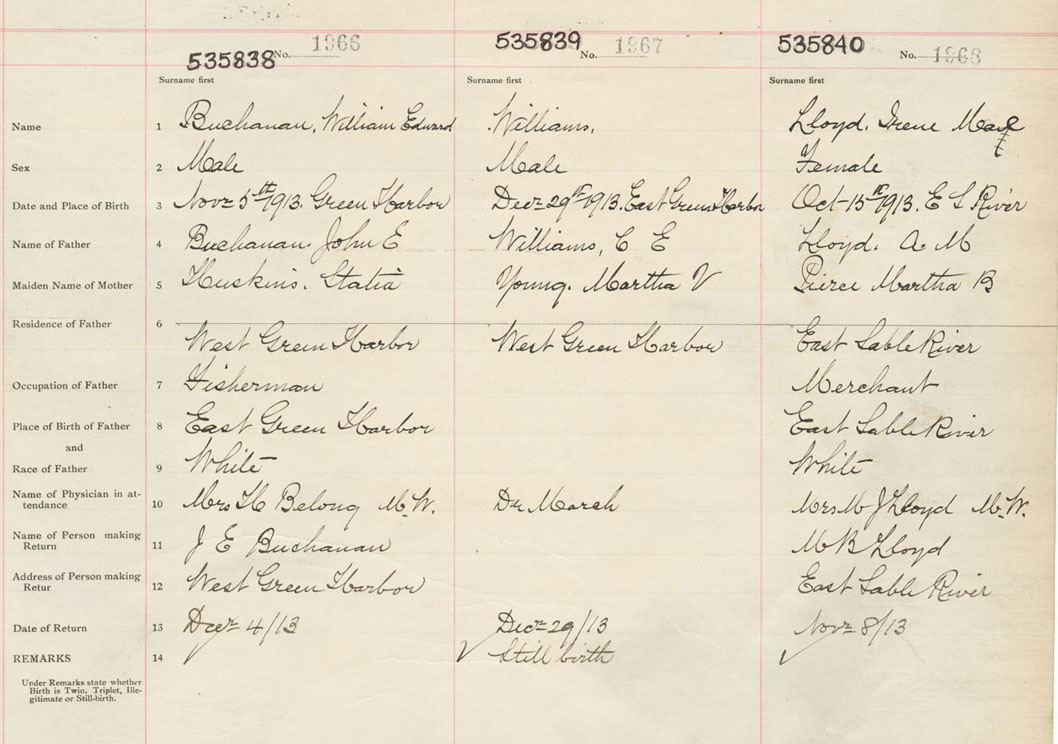 535838 No. 1966 535839 No. 1967 535840 No. 1968
Surname first Surname first Surname first
Name 1 Buchanan, William Edward Williams, Lloyd. Irene
Sex 2 Male Male Female
Date and Place of Birth 3 Novr 5th 1913. Green Harbor Decr 29th 1913. East Green Harbor Oct 15th 1913. E S River
Name of Father 4 Buchanan. John E Williams, C E Lloyd. A M
Maiden Name of Mother 5 Huskins. Statia Young. Martha V Pierce Martha B
Residence of Father 6 West Green Harbor West Green Harbor East Sable River
Occupation of Father 7 Fisherman Merchant
Place of Birth of Father 8 East Green Harbor East Sable River
and
Race of Father 9 White White
Name of Physician in at-
tendance 10 Mrs H Belong M.W. Dr March Mrs M J Lloyd M.W.
Name of Person making
Return 11 J E Buchanan M B Lloyd
Address of Person making
Retur 12 West Green Harbor East Sable River
Date of Return 13 Decr 4/13 Decr 29/13 Novr 8/13
REMARKS 14 Still birth
Under Remarks state whether
Birth is Twin, Triplet, Ille-
gitimate or Still-birth.